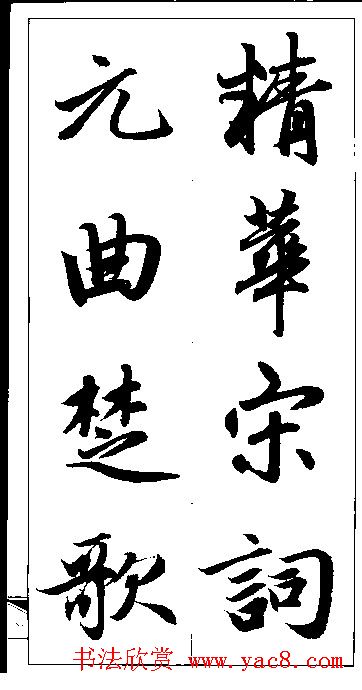 精華宋詞
元曲楚歌
书法欣赏 www.yac8.com